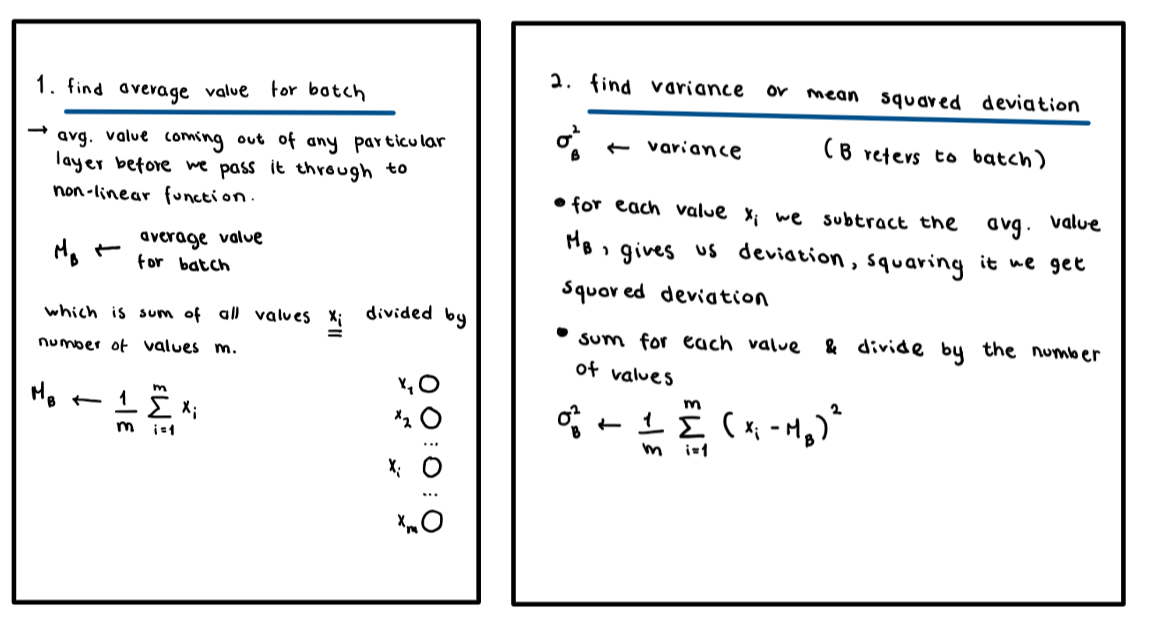 1. find average value for batch
→ avg. value coming out of any particular
layer before we pass it through to
non-linear function.
M_B ← average value
for batch
which is sum of all values x_i divided by
number of values m.
M_B ← 1/m Σ_{i=1}^{m} x_i
x_1
x_2
...
x_i
...
x_m
2. find variance or mean squared deviation
σ_B^2 ← variance (B refers to batch)
• for each value x_i we subtract the avg. value
M_B, gives us deviation, squaring it we get
squared deviation
• sum for each value & divide by the number
of values
σ_B^2 ← 1/m Σ_{i=1}^{m} (x_i - M_B)^2